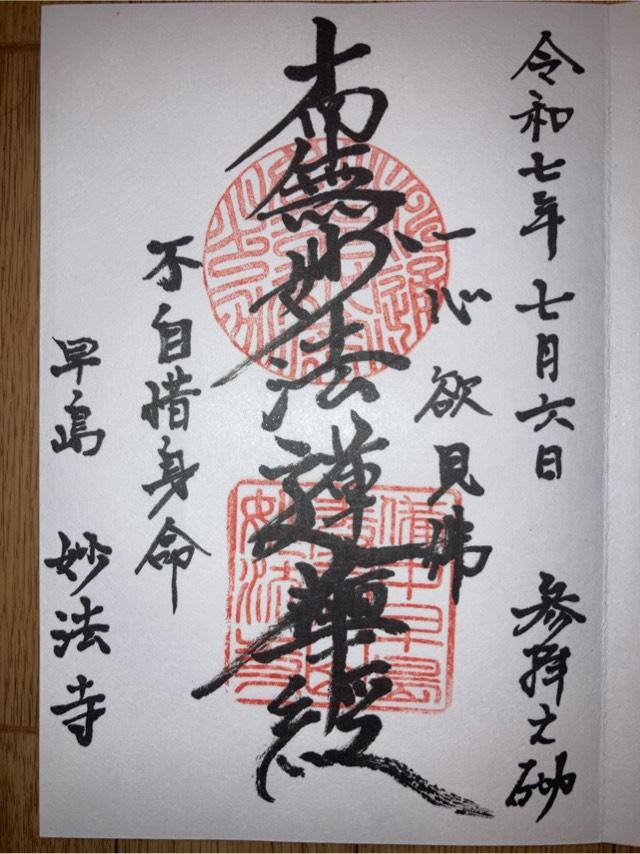 令和七年 七月六日 参拝之砌
一心欲見佛
南無妙法蓮華経
不自惜身命
早島 妙法寺